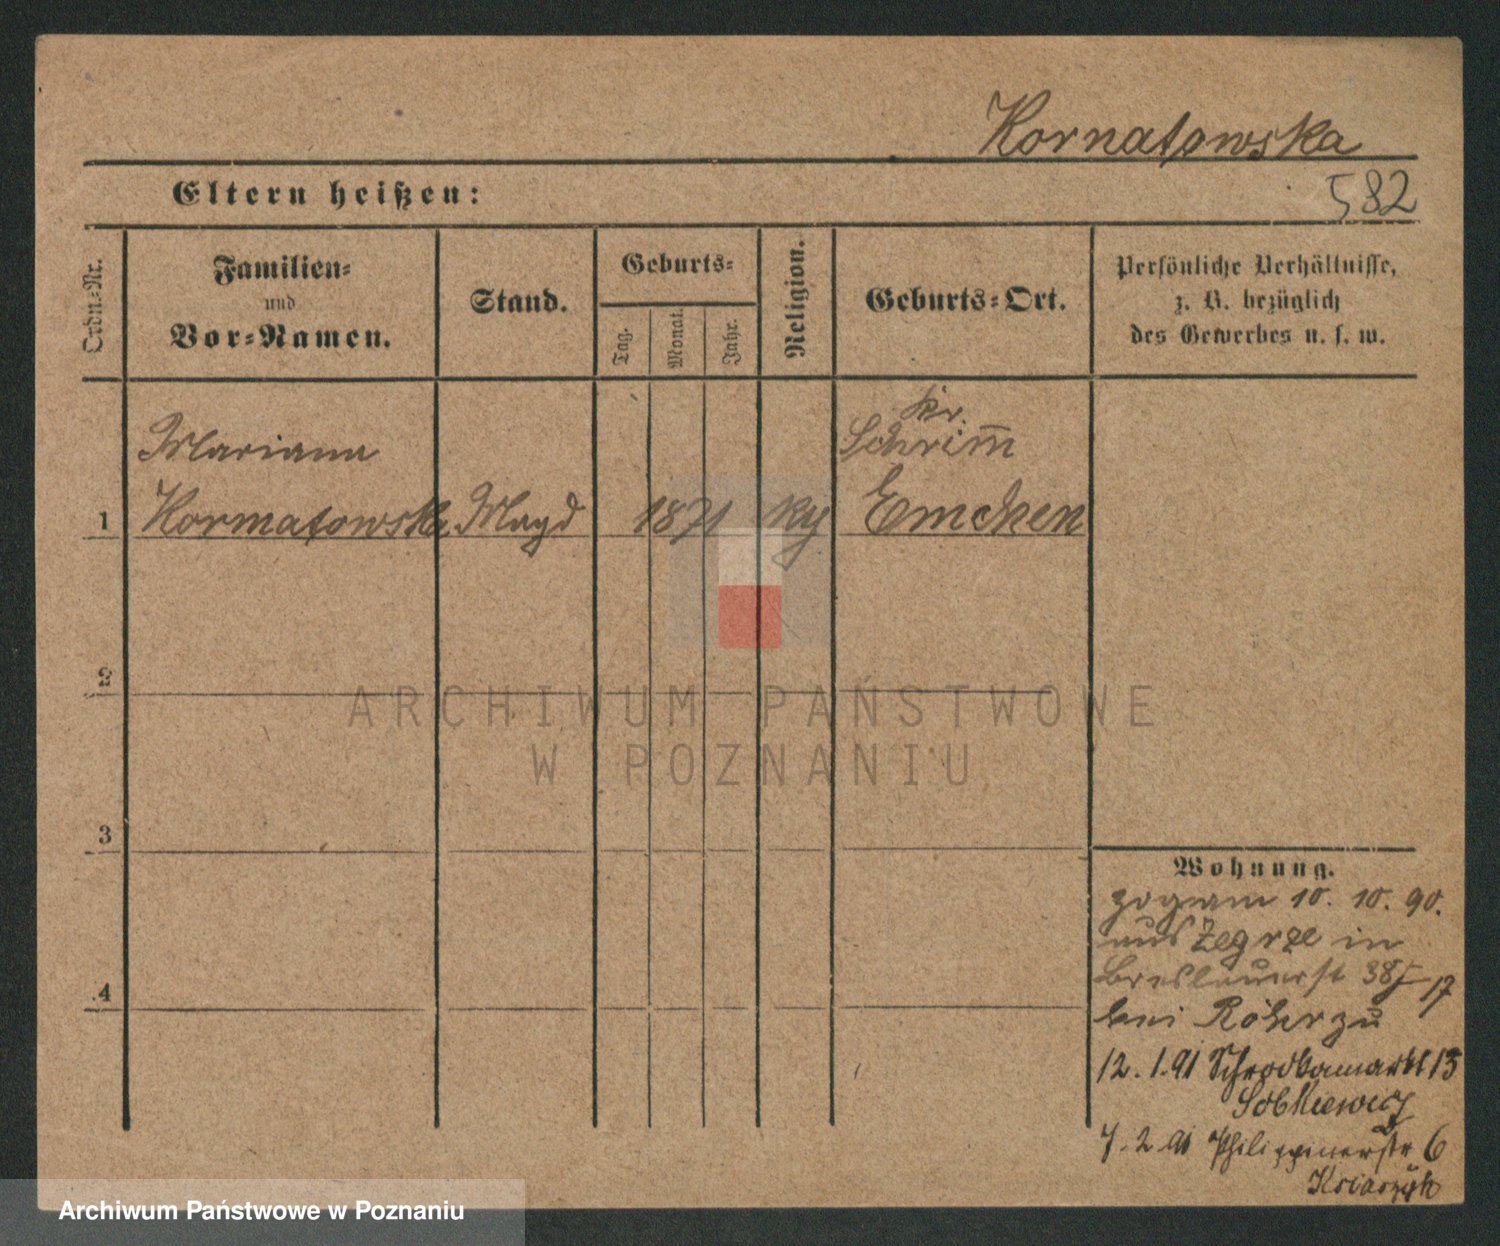 Kornatowska
Eltern heißen:
582
Ordn.-Nr.
Familien-
und
Vor-Namen.
Stand.
Geburts-
Tag.
Monat.
Jahr.
Religion.
Geburts-Ort.
Persönliche Verhältnisse,
z. B. bezüglich
des Gewerbes u. s. w.
Marianna
Kr.
Schrim̅
1 Kornatowska Magd 1871 Emchen
2
ARCHIWUM PAŃSTWOWE
W POZNANIU
3
4
Wohnung.
zog am 10. 10. 90.
aus Zegrze in
Breslauerst 38 17
bei zu
12. 1. 91 Schrodkamarkt 13
7. 2. 91 Philippinerstr 6
Archiwum Państwowe w Poznaniu